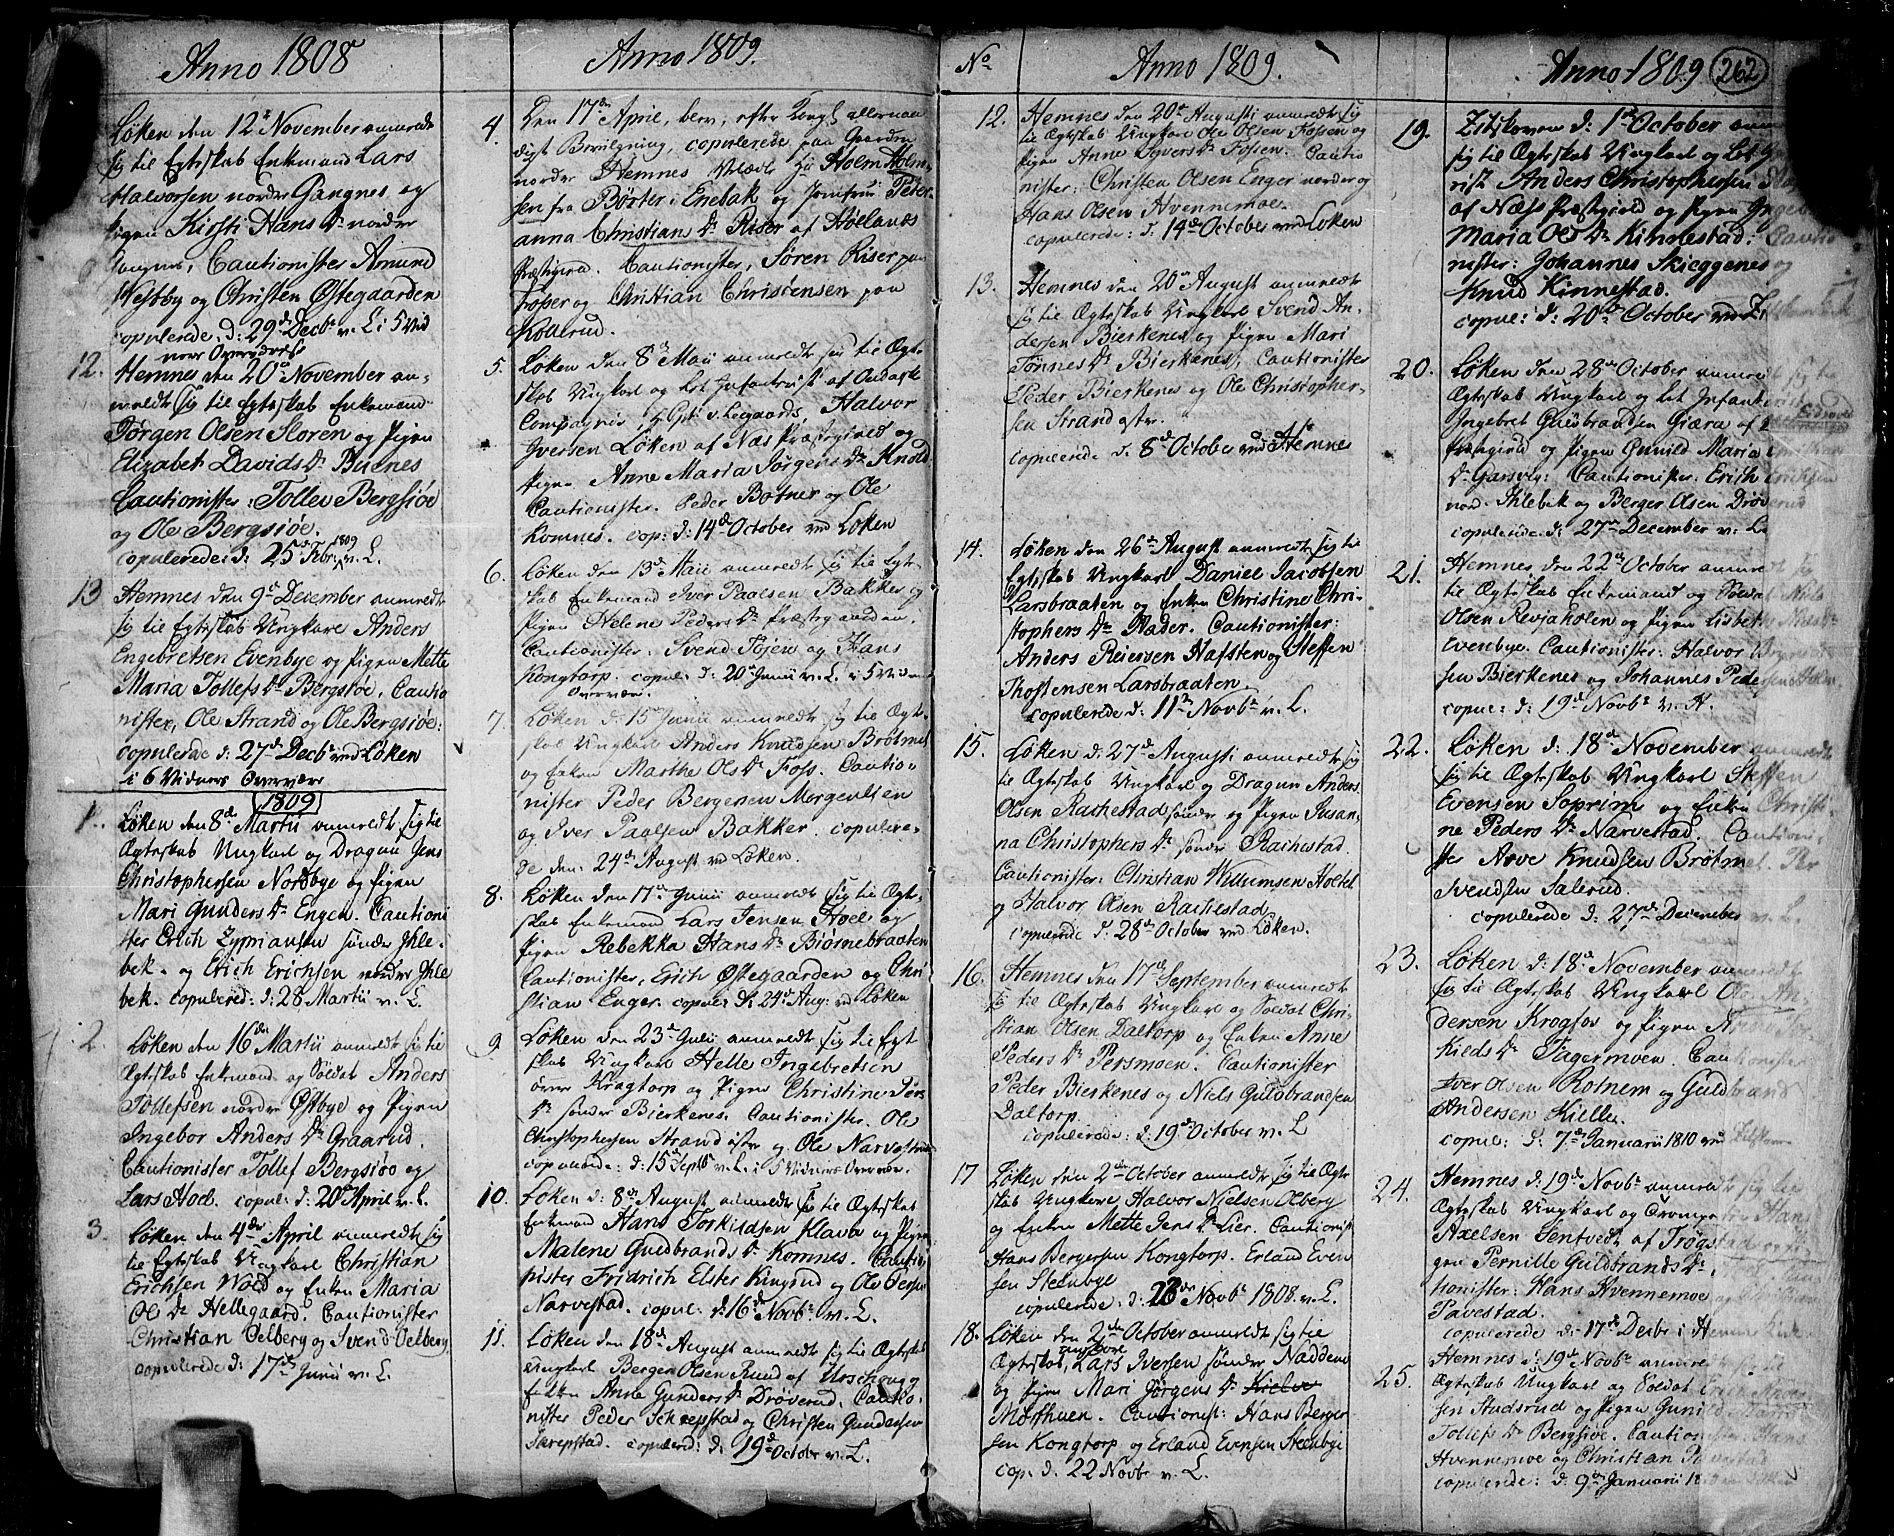 Anno 1808
Løken den 12te November anmeldt
sig til Egteskab Enkemand Lars
Halvorsen nordre Gangnes og
Pigen Kirsti Hans Dr nordre
Gangnes, Cautionister Amund
Westby og Christen Østegaarden
copulerede d: 29de Decbr v. L. i 5 Vid
ners Overværelse
12. Hemnes den 20de November an-
meldt sig til Egteskab Enkemand
Jørgen Olsen Sloren og Pigen
Elizabet Davids Dr Buenes
Cautionister: Tollev Bergsiøe
og Ole Bergsiøe.
copulerede d: 25de Febr. 1809 v. L.
13 Hemnes den 9de December anmeldt
sig til Egteskab Ungkarl Anders
Engebretsen Evenbye og Pigen Mette
Maria Tollefs Dr Bergsiøe. Cautio
nister, Ole Strand og Ole Bergsiøe:
copulerede d: 27de Decbr ved Løken
i 6 Vidners Overvære
1809
1. Løken den 8de Martii anmeldt sig til
Egteskab Ungkarl og Dragun Jens
Christophersen Nordbye og Pigen
Mari Gunders Dr Engen. Cautioni
ster Erich Zypriansen søndre Ihle-
bek. og Erich Erichsen nordre Ihle
bek. copulered: d: 28 Martii v. L.
2. Løken den 16de Martii anmeldt sig til
Egteskab Enkemand og Soldat Anders
Tollefsen nordre Østbye og Pigen
Ingebor Anders Dr Graarud.
Cautionister Tollef Bergsiøe og
Lars Hoel. copul: d: 20de April v. L.
3. Løken den 4de April anmeldt sig
til Egteskab Ungkarl Christian
Erichsen Wold og Enken Maria
Ols Dr Hellegaard. Cautionister
Christian Oelberg og Svend Oelberg
copulerede d: 17de Junii v. L.
Anno 1809.
4. Den 17de April, blev, efter Kongl. allernaa
digst Bevilgning, copulerede paa Gaarden
nordre Hemnes Holm Holm-
sen fra Børter i Enebak og Jomfru Peter-
anna Christian Dr Riser af Hølands
Præstegield. Cautionister, Søren Riser paa
Fosser og Christian Christensen paa
Kollerud.
5. Løken den 8de Maii anmeldt sig til Egte
skab Ungkarl og Let Infanterist af Omark
Compagnie, Capt. v. Legaards, Halvor
Iversen Løken af Næs Præstegield og
Pigen Anne Maria Jørgens Dr Knold
Cautionister. Peder Botner og Ole
Komnes. cop: d: 14de October ved Løken
6. Løken den 13de Maii anmeldt sig til Egte-
skab Enkemand Iver Paalsen Bakker og
Pigen Helene Peders Dr Præstegaarden.
Cautionister. Svend Tøjen og Hans
Kongtorp. copul: d: 20de Junii v. L. i 5 Vidners
Overvær.
7. Løken d: 15de Junii anmeldt sig til Egte-
skab Ungkarl Anders Knudsen Brøtmet
og Enken Marthe Ols Dr Foss. Cautio-
nister Peder Bergersen Morgenlien
og Iver Paalsen Bakker. copulere-
de den: 24de August ved Løken.
8. Løken den 17de Junii anmeldt sig til Egte-
skab Enkemand Lars Jensen Hoel og
Pigen Rebekka Hans Dr Biørnebraaten
Cautionister, Erich Østegaarden og Chri-
stian Enger. copul: d: 24de Aug: v L Løken
9. Løken den 23de Julii anmeldt sig til Egte
skab Ungkarl Helle Ingebretsen
øvre Kragtorp og Pigen Christine Jørgens
Dr søndre Bierkenes. Cautionister. Ole
Christophersen Strand østre og Ole Narvestad
copulerede: d: 15de Septb v. L. i 5 Vidners Overvær.
10. Løken d: 8de August anmeldt sig til Egteskab
Enkemand Hans Torkildsen Klava og Pigen
Malene Guldbrands Dr Komnes. Cautio
nister Fridrich Elster Kinsrud og Ole Persen
Narvestad. copul: d: 16de Novbr v. L.
11. Løken den 18de August anmeldt sig til Egteskab
Ungkarl Bergen Olsen Rund af Urschoug og
Enken Anne Gunders Dr Drøverud. Cautio-
nister Peder Skrepstad og Christen Gundersen
Skrepstad. copulered: d: 19de October v. L.
No Anno 1809.
12. Hemnes den 20de Augusti anmeldt sig
til Egteskab Ungkarl Ole Olsen Fossen og
Pigen Anne Syvers Dr Fossen. Cautio
nister: Christen Olsen Enger nordre og
Hans Olsen Hvennemoe.
copulerede: d: 14de October ved Løken
13. Hemnes den 20de August anmeldt
sig til Egteskab Ungkarl Svend An-
dersen Bierkenes og Pigen Mari
Tønnes Dr Bierkenes, Cautionister
Peder Bierkenes og Ole Christopher-
sen Strand østr.
copulerede d. 8de October ved Hemnes
14. Løken den 26de August anmeldt sig til
Egteskab Ungkarl Daniel Jacobsen
Larsbraaten og Enken Christine Chri-
stophers Dr Rader. Cautionister:
Anders Reiersen Hafsten og Steffen
Thostensen Larsbraaten.
copulerede d: 11te Novbr v. L.
15. Løken d: 27de Augusti anmeldt sig
til Egteskab Ungkarl og Dragun Anders
Olsen Rachestad søndre og Pigen Susan-
na Christophers Dr søndre Rachestad.
Cautionister: Christian Willumsen Holtet
og Halvor Olsen Rachestad
copulerede d. 28de October ved Løken.
16. Hemnes den 17de September anmeldt
sig til Egteskab Ungkarl og Soldat Chri-
stian Olsen Daltorp og Enken Anne
Peders Dr Persmoen. Cautionister
Peder Bierkenes og Niels Guldbrandsen
Daltorp.
copulerede: d: 19de October v. L
17 Løken den 2den October anmeldt sig til Egte
skab Ungkarl Halvor Nielsen Ølberg
og Enken Mette Jens Dr Lier. Cautionist
Hans Bergersen Kongtorp. Erland Even
sen Steenbye
copulerede: d: 28de Novbr 1808 v. L.
18. Løken den 2den October anmeldt sig til
Egteskab, Ungkarl Lars Iversen søndre Naddum
og Pigen Mari Jørgens Dr Kielle
Mosthuen. Cautionist: Hans Berger
sen Kongtorp og Erland Evensen Steenbye
cop. d. 22 Novbr v. L.
Anno 1809 262
19. Zitskoven d: 1ste October anm
sig til Egteskab Ungkarl og Let
rist Anders Christophersen
af Næss Præstegield og Pigen Ingebor
Maria Ols Dr Kinnestad. Cautio
nister: Johannes Skieggenes og
Knud Kinnestad.
copul: d: 20de October ved
20. Løken den 28de October anmeldt sig til
Egteskab Ungkarl og let Infanterist
Ingebret Guldbrandsen Giæra af Eidsvold
Præstegield og Pigen Gunild Maria
Dr Garsvig: Cautionister: Erich Erichsen
nord. Ihlebek og Berger Olsen Drøverud
copulerede d: 27de December v. L.
21. Hemnes den 22de October anmeldt sig
til Egteskab Enkemand og Soldat Nils
Olsen Revjaholen og Pigen Lisbet
Evenbye. Cautionister: Halvor
sen Bierkenes og Johannes Peder
copul: d: 19de Novbr v. H.
22. Løken d: 18de November anmeldt
sig til Egteskab Ungkarl Steffen
Evensen Soprim og Enken Christi-
ne Peders Dr Narvestad. Cautioni-
ster Arve Knudsen Brøtmet. Per
Svendsen Salerud.
copulerede d: 27de December v. L.
23. Løken d: 18de November anmeldt
sig til Egteskab Ungkarl Ole An-
dersen Krogfos og Pigen
Kilds Dr Fagermoen. Cautionister
Iver Olsen Rotnem og Guldbrand
Andersen Kielle.
copul: d: 7de Januarii 1810 ved Zitskoven
24. Hemnes d: 19de Novbr anmeldt sig til
Egteskab Ungkarl og Trompeter Hans
Axelsen Sentvedt af Trøgstad og Pi-
gen Pernille Guldbrands Dr
tionister: Hans Hvennemoe
Pavestad.
copulerede d: 17de Decbr i Hemnes Kirke
25. Hemnes d: 19de Novbr anmeldt
Egteskab Ungkarl og Soldat Erich
sen Studsrud og Pigen Gunild
Tollefs Dr Bergsiøe. Cautionist Hans
Hvennemoe og Christian Pavestad
copulerede: d: 9de Januarii